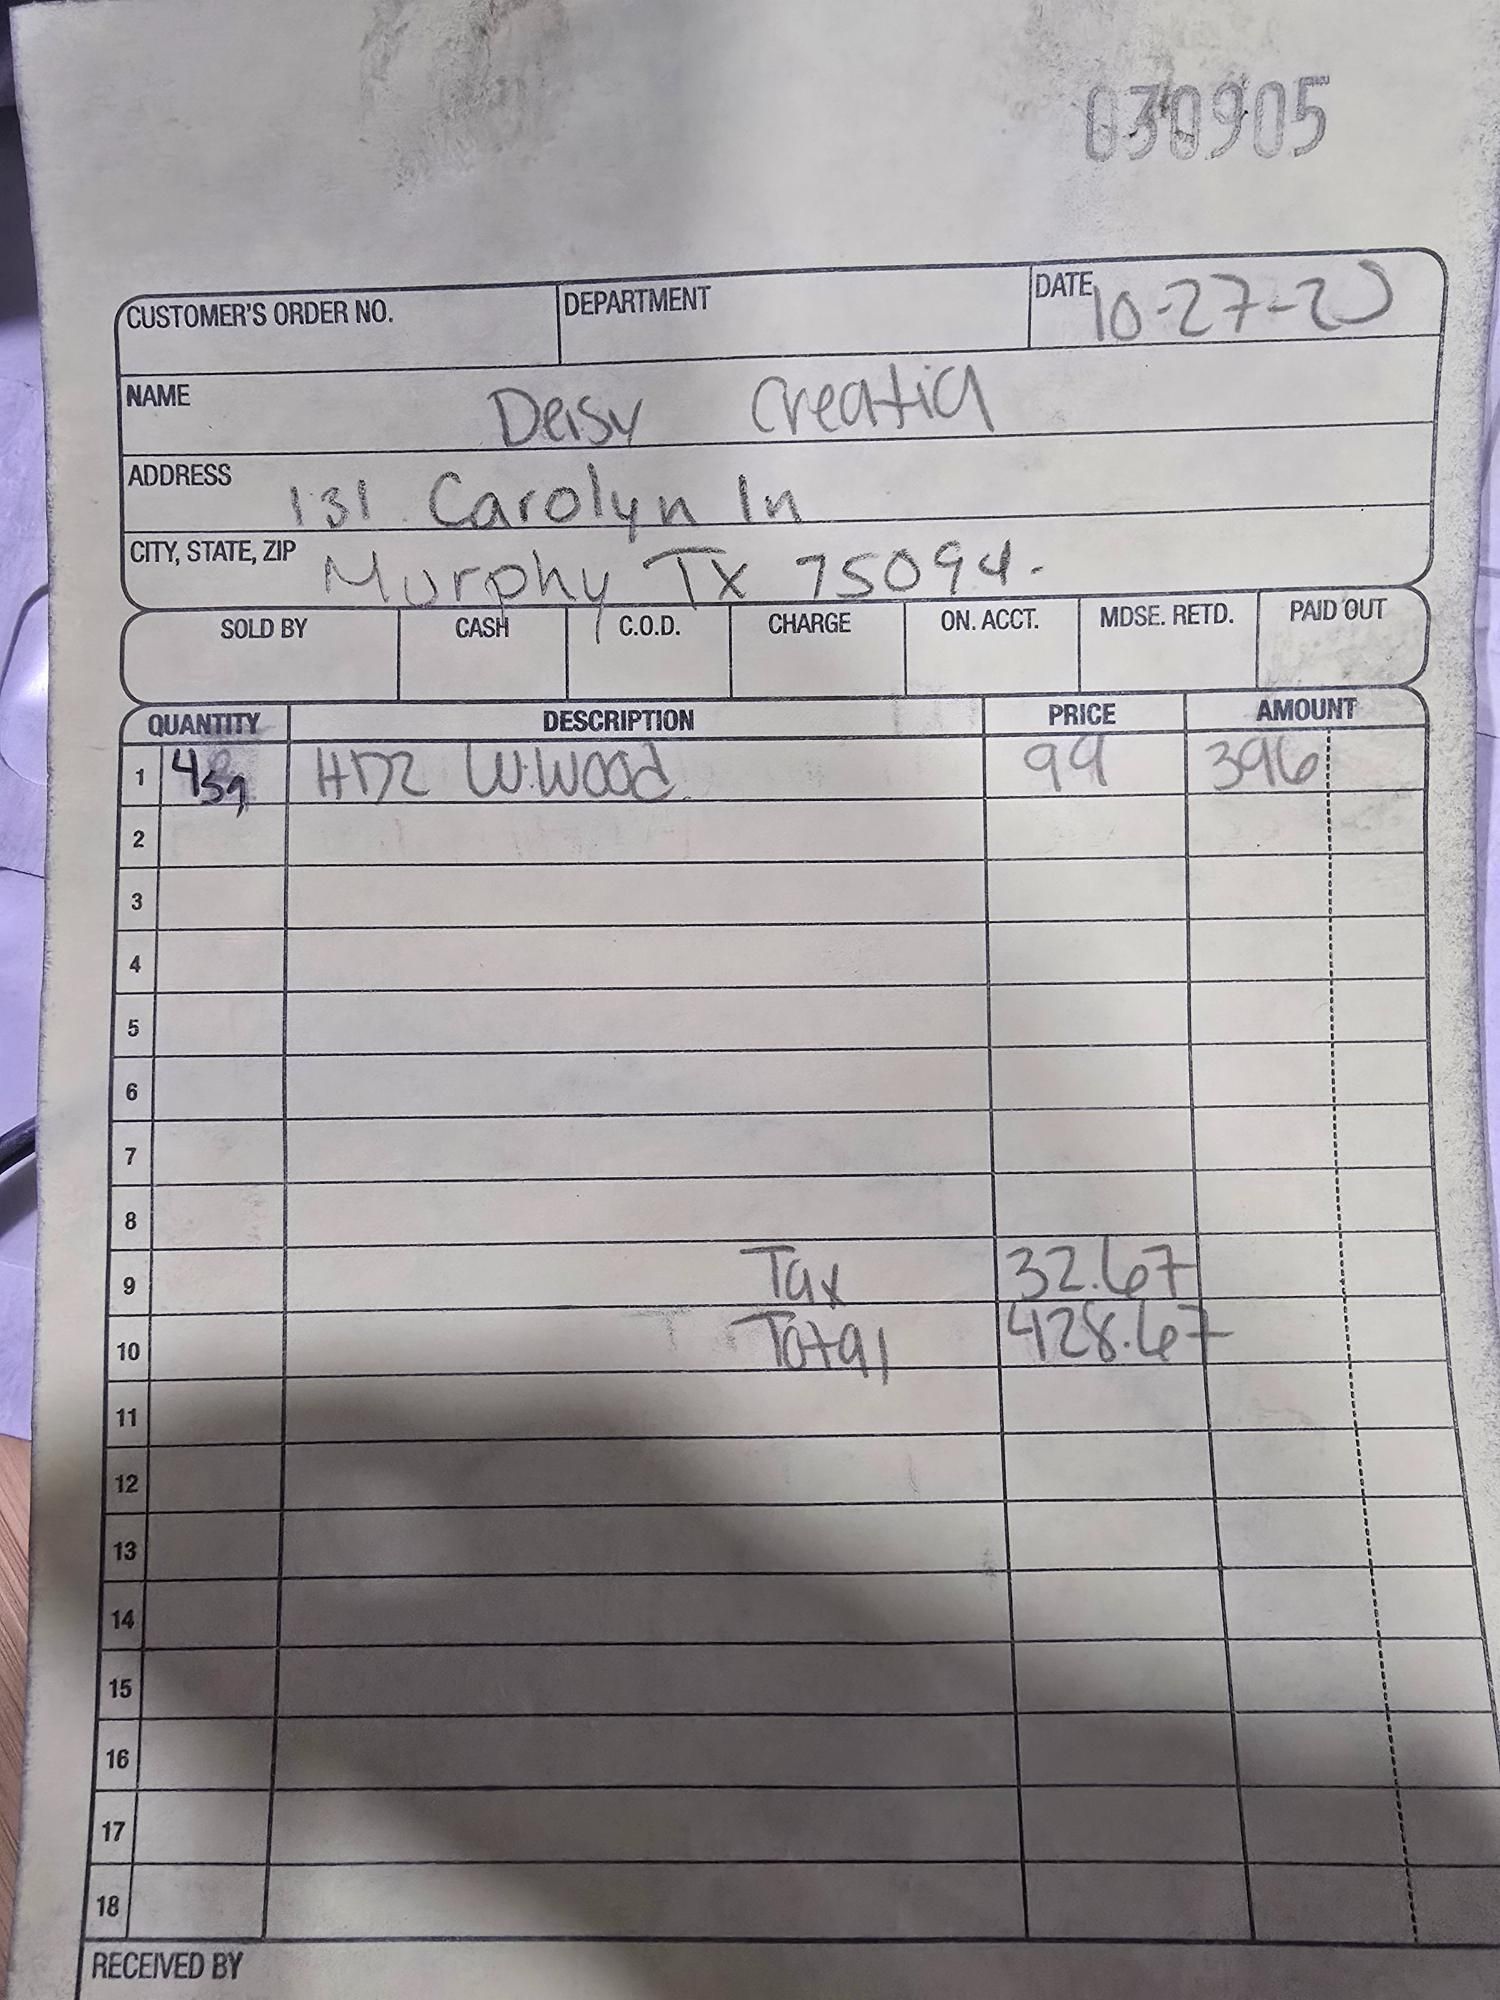 030905
CUSTOMER'S ORDER NO. DEPARTMENT DATE 10-27-20
NAME Deisy Creatia
ADDRESS 131 Carolyn ln
CITY, STATE, ZIP Murphy TX 75094.
SOLD BY CASH C.O.D. CHARGE ON. ACCT. MDSE. RETD. PAID OUT
QUANTITY DESCRIPTION PRICE AMOUNT
1 4sq HDZ W.Wood 99 396
2
3
4
5
6
7
8
9 Tax 32.67
10 Total 428.67
11
12
13
14
15
16
17
18
RECEIVED BY